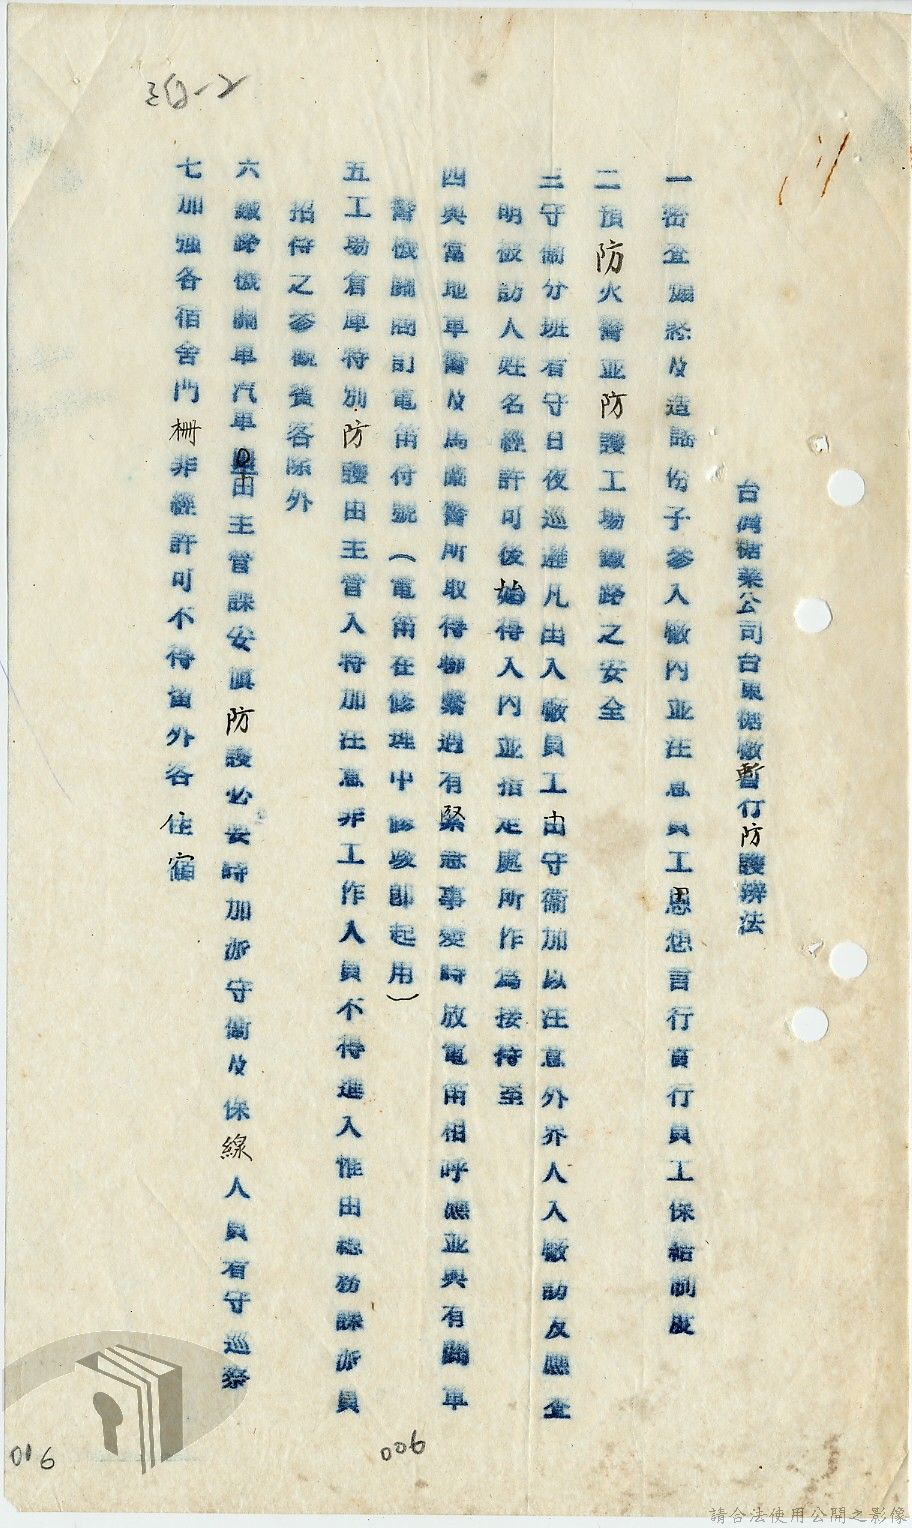 台灣糖業公司台東糖廠暫行防護辦法
一密查煽惑及造謠份子參入廠內並注意員工思想言行實行員工保結制度
二預防火警並防護工場鐵路之安全
三守衛分班看守日夜巡邏凡出入廠員工由守衛加以注意外界人入廠訪友應查
明被訪人姓名經許可後始得入內並指定處所作為接待室
四與當地軍警及馬蘭警所取得聯繫遇有緊急事變時放電笛相呼應並與有關軍
警機關商訂電笛付號(電笛在修理中修竣即起用)
五工場倉庫特別防護由主管人特加注意非工作人員不得進入惟由總務課派員
招待之參觀賓客除外
六鐵路機關車汽車由主管課安慎防護必要時加派守衛及保線人員看守巡察
七加強各宿舍門柵非經許可不得留外客住宿
006
016
請合法使用公開之影像